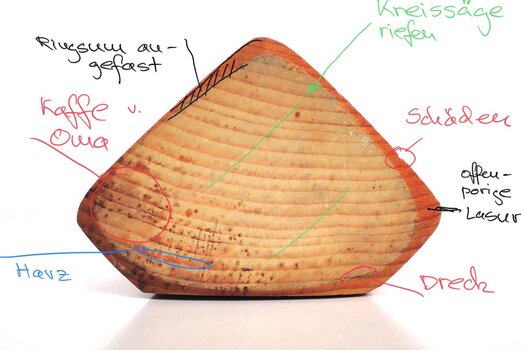 Kreissäge
riefen
Ringsum an-
gefast
Kaffe v.
Oma
Schäden
offen-
porige
Lasur
Harz
Dreck